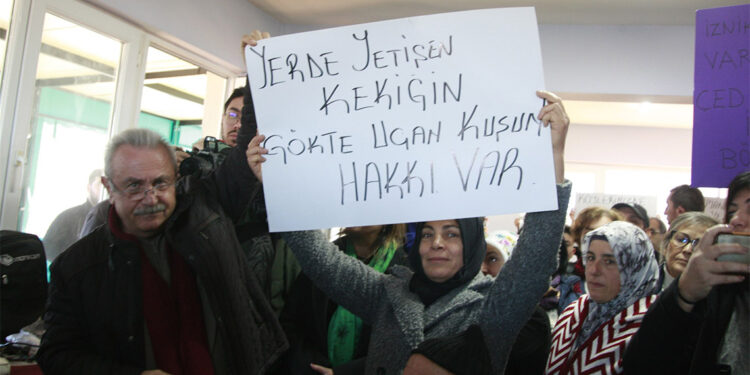 YERDE YETİŞEN
KEKİĞİN
GÖKTE UÇAN KUŞUN
HAKKI VAR.
İZNİK
VAR
ÇED